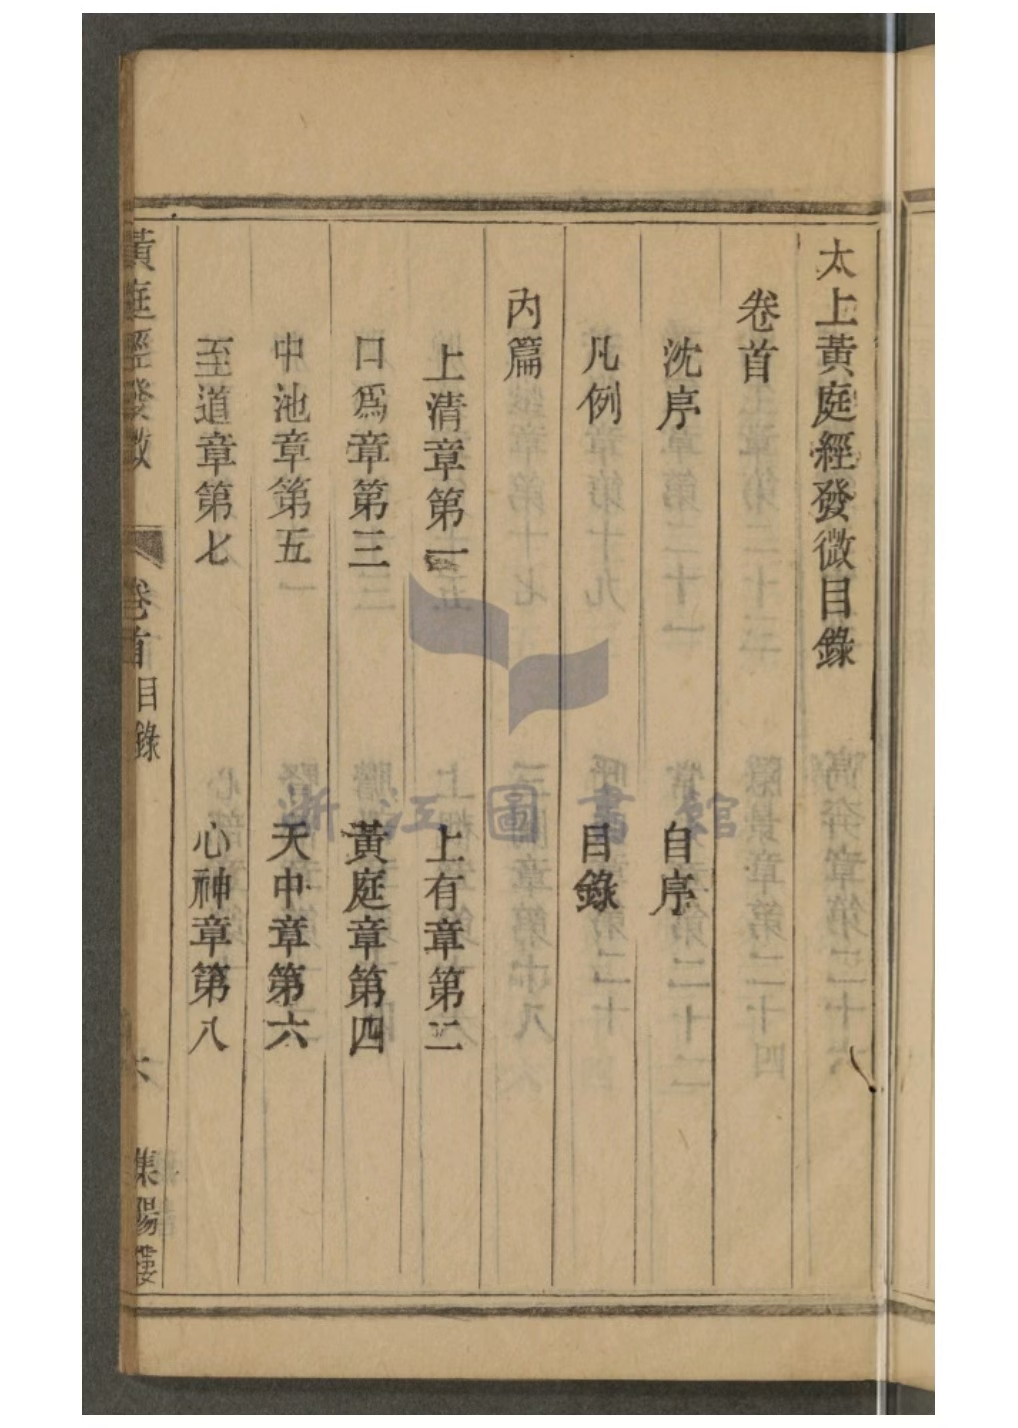 太上黃庭經發微目錄
卷首
沈序 自序
凡例 目錄
內篇
上清章第一 上有章第二
口為章第三 黃庭章第四
中池章第五 天中章第六
至道章第七 心神章第八
黃庭經發微 卷首目錄 六 集陽樓
浙江圖書館